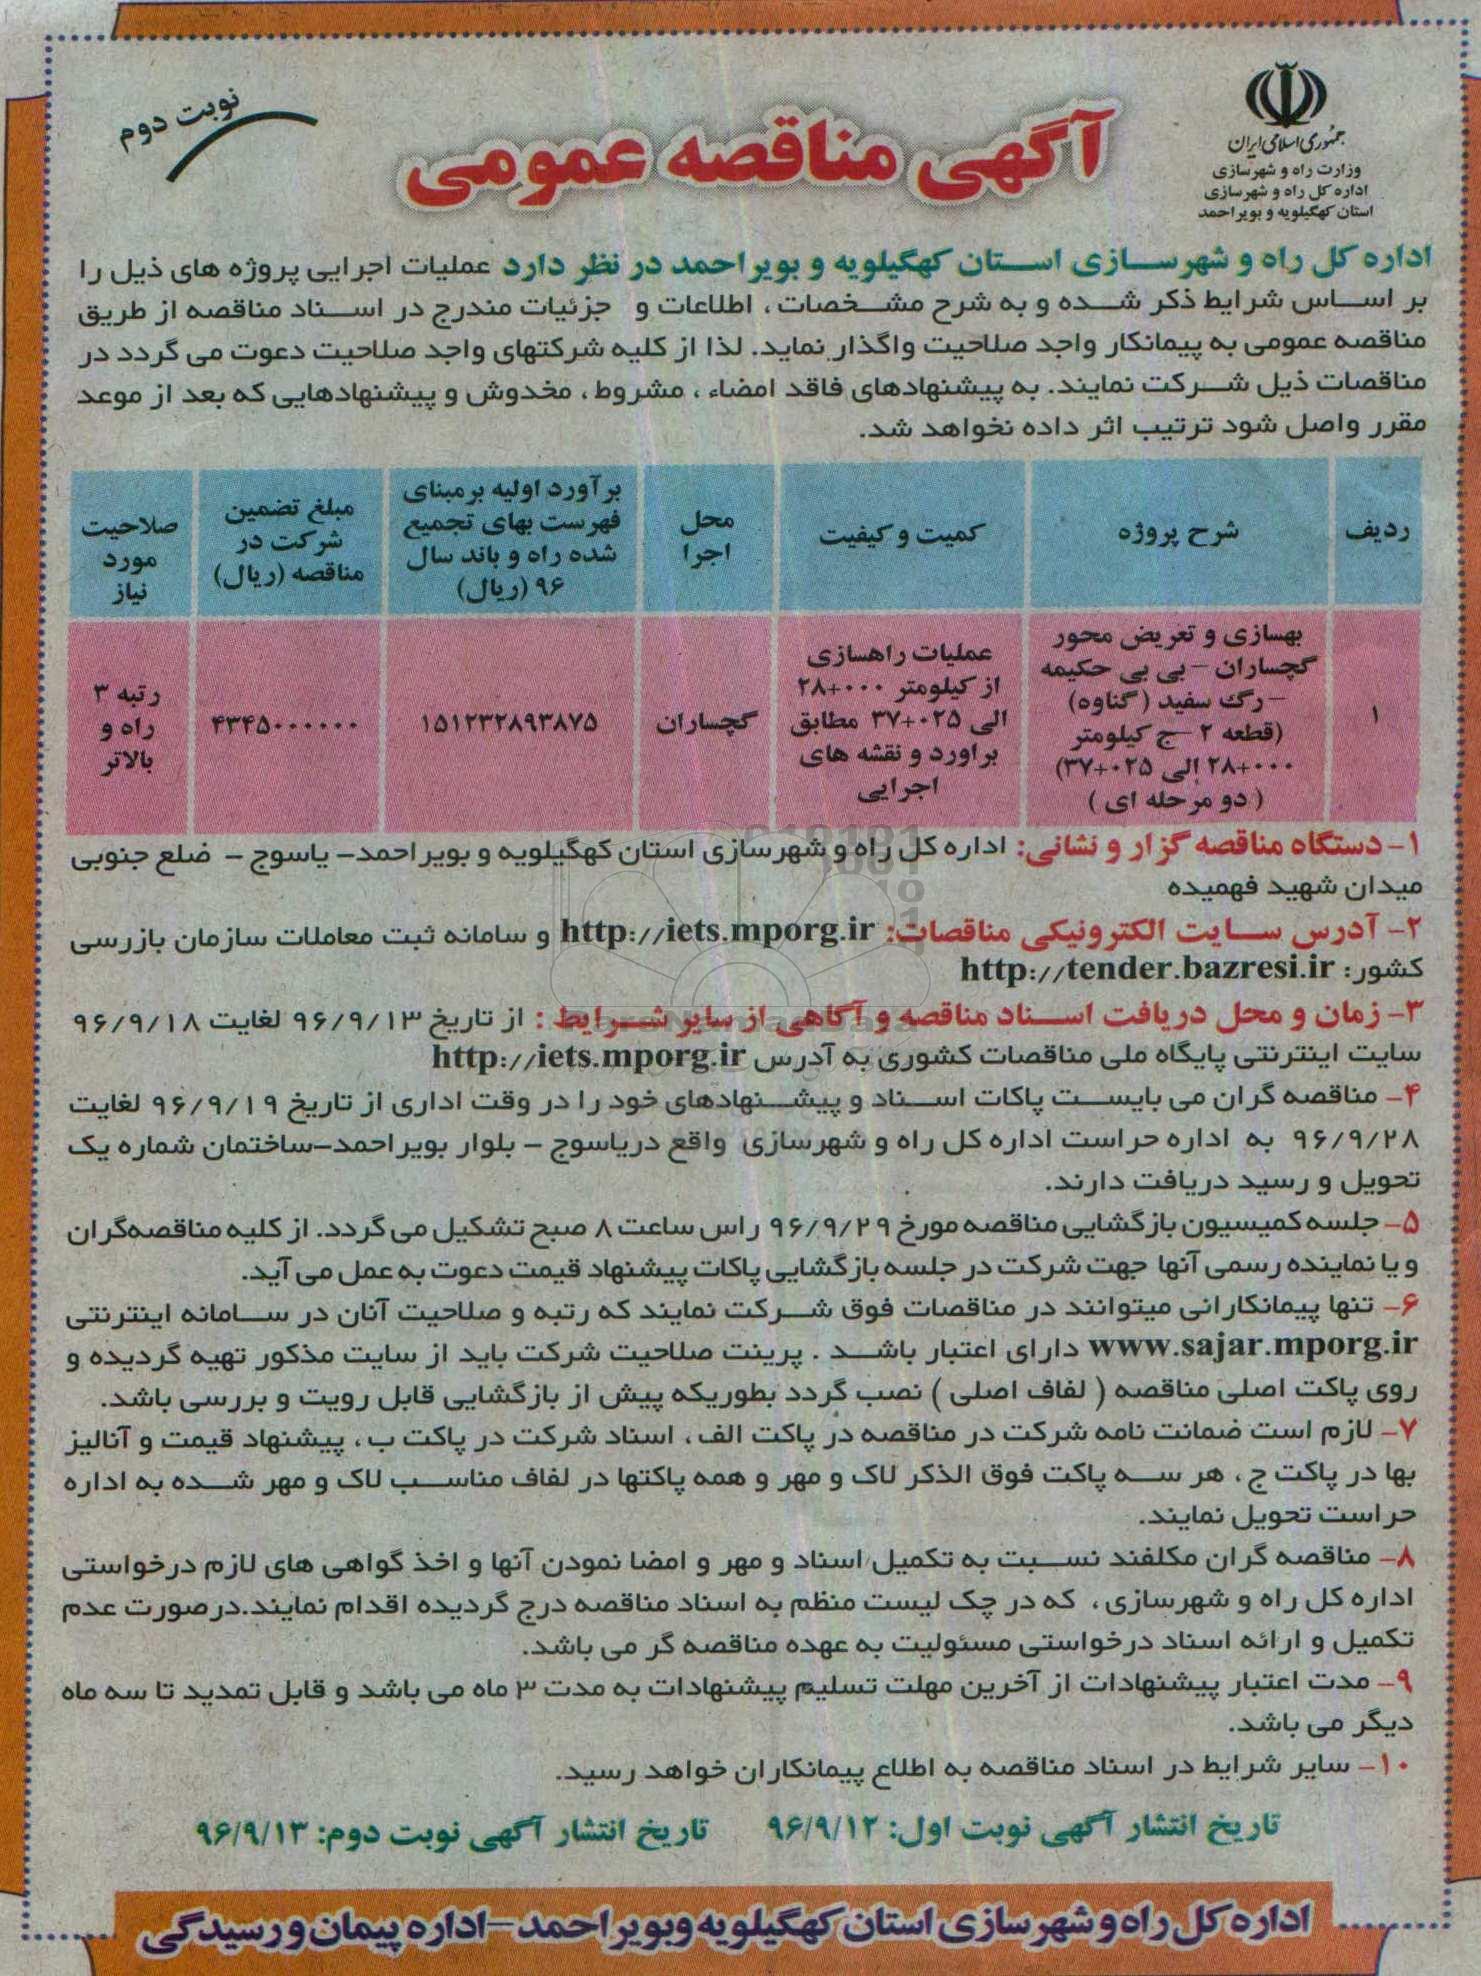 جمهوری اسلامی ایران
وزارت راه و شهرسازی
اداره کل راه و شهرسازی
استان کهگیلویه و بویراحمد
آگهی مناقصه عمومی
نوبت دوم
اداره کل راه و شهرسازی استان کهگیلویه و بویراحمد در نظر دارد عملیات اجرایی پروژه های ذیل را
بر اساس شرایط ذکر شده و به شرح مشخصات ، اطلاعات و جزئیات مندرج در اسناد مناقصه از طریق
مناقصه عمومی به پیمانکار واجد صلاحیت واگذار نماید. لذا از کلیه شرکتهای واجد صلاحیت دعوت می گردد در
مناقصات ذیل شرکت نمایند. به پیشنهادهای فاقد امضاء ، مشروط ، مخدوش و پیشنهادهایی که بعد از موعد
مقرر واصل شود ترتیب اثر داده نخواهد شد.
ردیف
شرح پروژه
کمیت و کیفیت
محل
اجرا
برآورد اولیه برمبنای
فهرست بهای تجمیع
شده راه و باند سال
۹۶ (ریال)
مبلغ تضمین
شرکت در
مناقصه (ریال)
صلاحیت
مورد
نیاز
۱
بهسازی و تعریض محور
گچساران – بی بی حکیمه
– رگ سفید ( گناوه)
(قطعه ۲ – ج کیلومتر
۲۸+۰۰۰ الی ۳۷+۰۲۵)
( دو مرحله ای )
عملیات راهسازی
از کیلومتر ۲۸+۰۰۰
الی ۳۷+۰۲۵ مطابق
براورد و نقشه های
اجرایی
گچساران
۱۵۱۲۳۲۸۹۳۸۷۵
۴۳۴۵۰۰۰۰۰۰
رتبه ۳
راه و
بالاتر
۱- دستگاه مناقصه گزار و نشانی: اداره کل راه و شهرسازی استان کهگیلویه و بویراحمد- یاسوج - ضلع جنوبی
میدان شهید فهمیده
۲- آدرس سایت الکترونیکی مناقصات: http://iets.mporg.ir و سامانه ثبت معاملات سازمان بازرسی
کشور: http://tender.bazresi.ir
۳- زمان و محل دریافت اسناد مناقصه و آگاهی از سایر شرایط : از تاریخ ۹۶/۹/۱۳ لغایت ۹۶/۹/۱۸
سایت اینترنتی پایگاه ملی مناقصات کشوری به آدرس http://iets.mporg.ir
۴- مناقصه گران می بایست پاکات اسناد و پیشنهادهای خود را در وقت اداری از تاریخ ۹۶/۹/۱۹ لغایت
۹۶/۹/۲۸ به اداره حراست اداره کل راه و شهرسازی واقع دریاسوج - بلوار بویراحمد-ساختمان شماره یک
تحویل و رسید دریافت دارند.
۵- جلسه کمیسیون بازگشایی مناقصه مورخ ۹۶/۹/۲۹ راس ساعت ۸ صبح تشکیل می گردد. از کلیه مناقصه‌گران
و یا نماینده رسمی آنها جهت شرکت در جلسه بازگشایی پاکات پیشنهاد قیمت دعوت به عمل می آید.
۶- تنها پیمانکارانی میتوانند در مناقصات فوق شرکت نمایند که رتبه و صلاحیت آنان در سامانه اینترنتی
www.sajar.mporg.ir دارای اعتبار باشد . پرینت صلاحیت شرکت باید از سایت مذکور تهیه گردیده و
روی پاکت اصلی مناقصه ( لفاف اصلی ) نصب گردد بطوریکه پیش از بازگشایی قابل رویت و بررسی باشد.
۷- لازم است ضمانت نامه شرکت در مناقصه در پاکت الف، اسناد شرکت در پاکت ب ، پیشنهاد قیمت و آنالیز
بها در پاکت ج ، هر سه پاکت فوق الذکر لاک و مهر و همه پاکتها در لفاف مناسب لاک و مهر شده به اداره
حراست تحویل نمایند.
۸- مناقصه گران مکلفند نسبت به تکمیل اسناد و مهر و امضا نمودن آنها و اخذ گواهی های لازم درخواستی
اداره کل راه و شهرسازی ، که در چک لیست منظم به اسناد مناقصه درج گردیده اقدام نمایند.درصورت عدم
تکمیل و ارائه اسناد درخواستی مسئولیت به عهده مناقصه گر می باشد.
۹- مدت اعتبار پیشنهادات از آخرین مهلت تسلیم پیشنهادات به مدت ۳ ماه می باشد و قابل تمدید تا سه ماه
دیگر می باشد.
۱۰- سایر شرایط در اسناد مناقصه به اطلاع پیمانکاران خواهد رسید.
تاریخ انتشار آگهی نوبت اول: ۹۶/۹/۱۲ تاریخ انتشار آگهی نوبت دوم: ۹۶/۹/۱۳
اداره کل راه و شهرسازی استان کهگیلویه وبویراحمد -اداره پیمان و رسیدگی